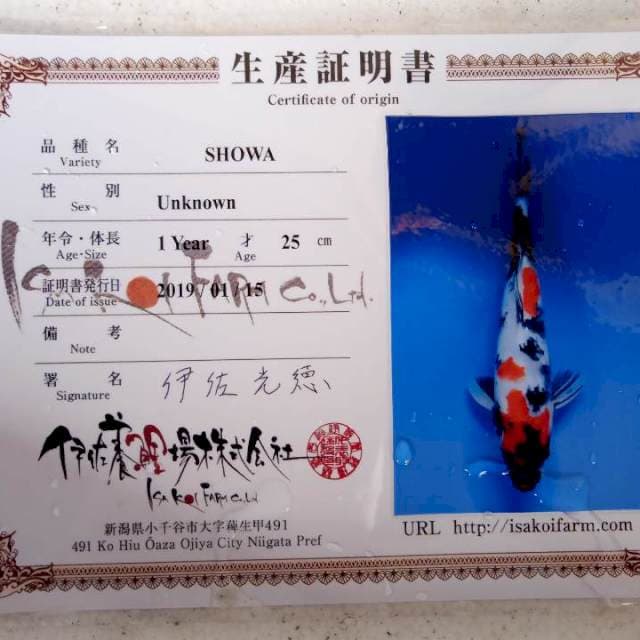 生産証明書
Certificate of origin
品種名 SHOWA
Variety
性別 Unknown
Sex
年令・体長 1 Year 才 25 cm
Age・Size Age
証明書発行日 2019 / 01 / 15
Date of issue
ISA KOI FARM CO., Ltd.
備考
Note
署名 伊佐光徳
Signature
伊佐養鯉場株式会社
ISA KOI FARM CO., Ltd
新潟県小千谷市大字薭生甲491
491 Ko Hiu Ōaza Ojiya City Niigata Pref
URL http://isakoifarm.com